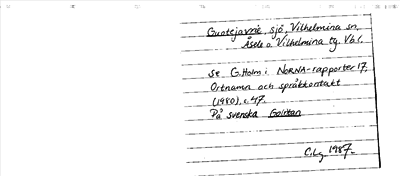 Guotejavrie, sjö, Vilhelmina sn,
Åsele o. Vilhelmina tg. Vb.l.
Se G. Holm i NORNA-rapporter 17,
Ortnamn och språkkontakt
(1980), s. 47.
På svenska Gois­tan
C.Lg 1987.